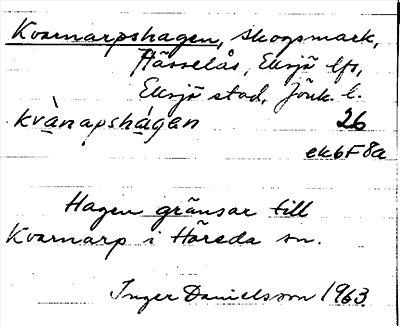 Kvarnarpshagen, skogsmark,
Hässelås, Eksjö lfs,
Eksjö stad, Jönk. l.
kvànapshágen 26
ek6F8a
Hagen gränsar till
Kvarnarp i Höreda sn.
Inger Danielsson 1963.